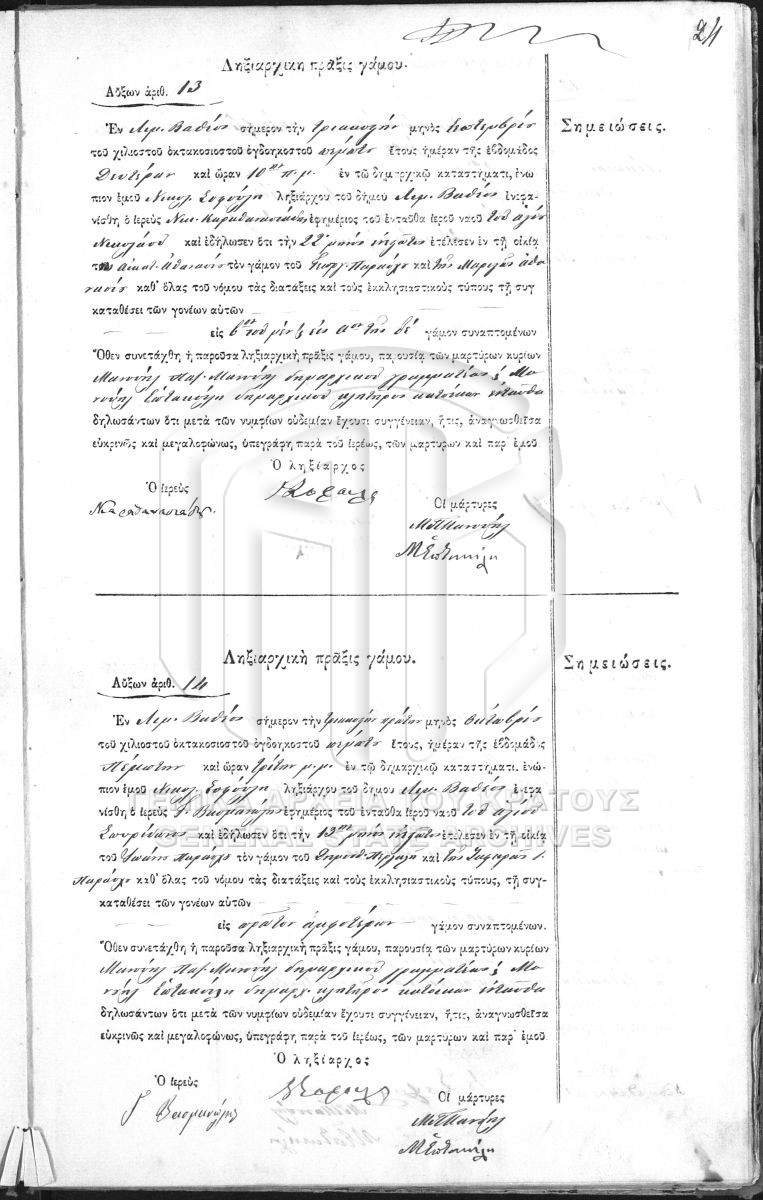 24
Ληξιαρχικὴ πρᾶξις γάμου.
Αὔξων ἀριθ. 13
Σημειώσεις.
Ἐν Λιμ. Βαθέος σήμερον τὴν τριακοστὴν μηνὸς Σεπτεμβρίου
τοῦ χιλιοστοῦ ὀκτακοσιοστοῦ ὀγδοηκοστοῦ πέμπτου ἔτους ἡμέραν τῆς ἑβδομάδος
Δευτέραν καὶ ὥραν 10ην π.μ. ἐν τῷ δημαρχικῷ καταστήματι, ἐνώ
πιον ἐμοῦ Νικολ. Σοφούλη ληξιάρχου τοῦ δήμου Λιμ. Βαθέος ἐνεφα-
νίσθη ὁ ἱερεὺς Νικ. Καραθανασιάδης ἐφημέριος τοῦ ἐνταῦθα ἱεροῦ ναοῦ τοῦ ἁγίου
Νικολάου καὶ ἐδήλωσεν ὅτι τὴν 22 μηνὸς ἐτέλεσεν ἐν τῇ οἰκίᾳ
Αἰκατ. Ἀθανασίου τὸν γάμον τοῦ Γεωργ. Παράσχου καὶ τῆς Μαριγῶς Ἀθα
νασίου καθ' ὅλας τοῦ νόμου τὰς διατάξεις καὶ τοὺς ἐκκλησιαστικοὺς τύπους τῇ συγ
καταθέσει τῶν γονέων αὐτῶν
εἰς τοῦ μὲν εἰς τῆς δὲ γάμον συναπτομένων
Ὅθεν συνετάχθη ἡ παροῦσα ληξιαρχικὴ πρᾶξις γάμου, παρουσίᾳ τῶν μαρτύρων κυρίων
Μανουὴλ Μανουὴλ δημαρχικοῦ γραμματέως Μα
νουὴλ δημαρχικοῦ κλητῆρος κατοίκων ἐνταῦθα
δηλωσάντων ὅτι μετὰ τῶν νυμφίων οὐδεμίαν ἔχουσι συγγένειαν, ἥτις, ἀναγνωσθεῖσα
εὐκρινῶς καὶ μεγαλοφώνως, ὑπεγράφη παρὰ τοῦ ἱερέως, τῶν μαρτύρων καὶ παρ' ἐμοῦ
Ὁ ληξίαρχος
Ὁ ἱερεὺς
Οἱ μάρτυρες
Ληξιαρχικὴ πρᾶξις γάμου.
Αὔξων ἀριθ. 14
Σημειώσεις.
Ἐν Λιμ. Βαθέος σήμερον τὴν τριακοστὴν πρώτην μηνὸς Ὀκτωβρίου
τοῦ χιλιοστοῦ ὀκτακοσιοστοῦ ὀγδοηκοστοῦ πέμπτου ἔτους, ἡμέραν τῆς ἑβδομάδος
Πέμπτην καὶ ὥραν τρίτην μ.μ. ἐν τῷ δημαρχικῷ καταστήματι, ἐνώ-
πιον ἐμοῦ Νικολ. Σοφούλη ληξιάρχου τοῦ δήμου Λιμ. Βαθέος ἐνεφα-
νίσθη ὁ ἱερεὺς ἐφημέριος τοῦ ἐνταῦθα ἱεροῦ ναοῦ τοῦ ἁγίου
Σπυρίδωνος καὶ ἐδήλωσεν ὅτι τὴν μηνὸς ἐτέλεσεν ἐν τῇ οἰκίᾳ
τοῦ Ἰωάν. Παράσχου τὸν γάμον τοῦ καὶ τῆς Ι.
Παράσχου καθ' ὅλας τοῦ νόμου τὰς διατάξεις καὶ τοὺς ἐκκλησιαστικοὺς τύπους, τῇ συγ-
καταθέσει τῶν γονέων αὐτῶν
εἰς πρῶτον ἀμφοτέρων γάμον συναπτομένων.
Ὅθεν συνετάχθη ἡ παροῦσα ληξιαρχικὴ πρᾶξις γάμου, παρουσίᾳ τῶν μαρτύρων κυρίων
Μανουὴλ Μανουὴλ δημαρχικοῦ γραμματέως Μα
νουὴλ δημαρχ. κλητῆρος κατοίκων ἐνταῦθα
δηλωσάντων ὅτι μετὰ τῶν νυμφίων οὐδεμίαν ἔχουσι συγγένειαν, ἥτις, ἀναγνωσθεῖσα
εὐκρινῶς καὶ μεγαλοφώνως, ὑπεγράφη παρὰ τοῦ ἱερέως, τῶν μαρτύρων καὶ παρ' ἐμοῦ
Ὁ ληξίαρχος
Ὁ ἱερεὺς
Οἱ μάρτυρες
ΓΕΝΙΚΑ ΑΡΧΕΙΑ ΤΟΥ ΚΡΑΤΟΥΣ
GENERAL STATE ARCHIVES